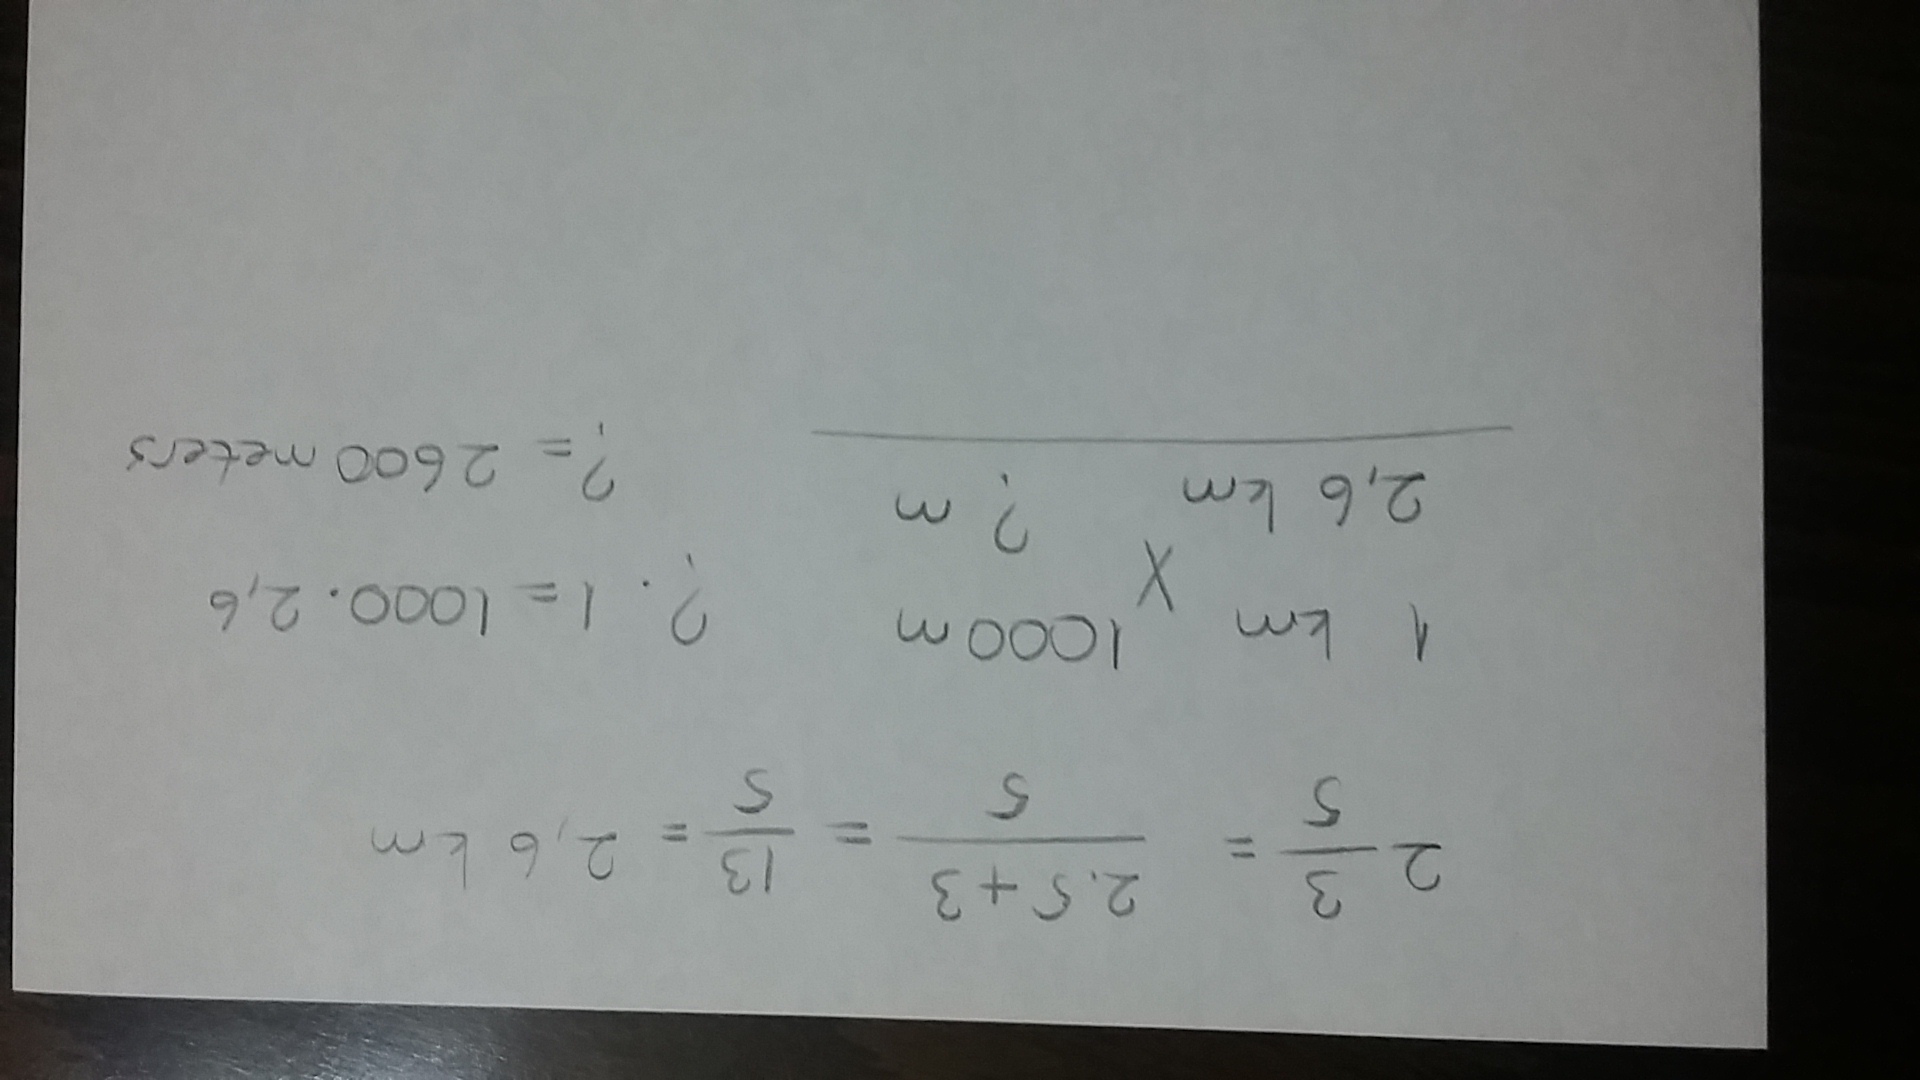 2 3/5 = 2.5+3/5 = 13/5 = 2,6 km
1 km X 1000 m ? . 1 = 1000 . 2,6
2,6 km ? m ? = 2600 meters